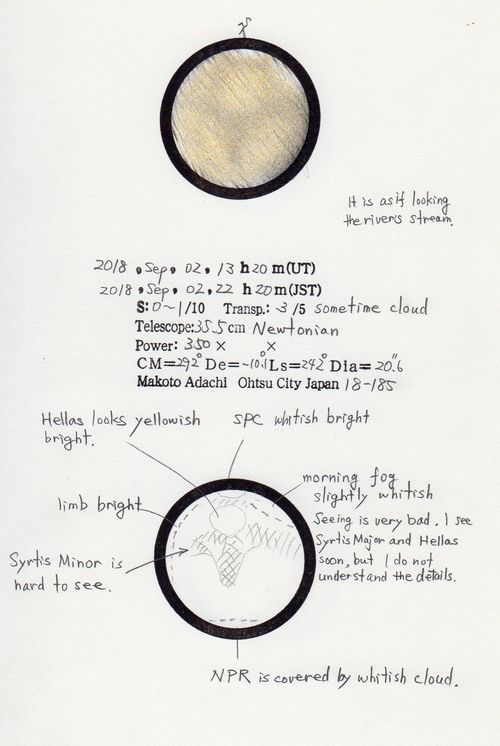 S
It is as if looking
the river's stream.
2018, Sep, 02, 13 h 20 m (UT)
2018, Sep, 02, 22 h 20 m (JST)
S: 0~1/10 Transp.: 3/5 sometime cloud
Telescope: 35.5 cm Newtonian
Power: 350 × ×
CM=292° De=-10.1° Ls=242° Dia=20.6"
Makoto Adachi Ohtsu City Japan 18-185
Hellas looks yellowish
bright.
SPC whitish bright
morning fog
slightly whitish
limb bright
Seeing is very bad. I see
Syrtis Major and Hellas
soon, but I do not
understand the details.
Syrtis Minor is
hard to see.
NPR is covered by whitish cloud.